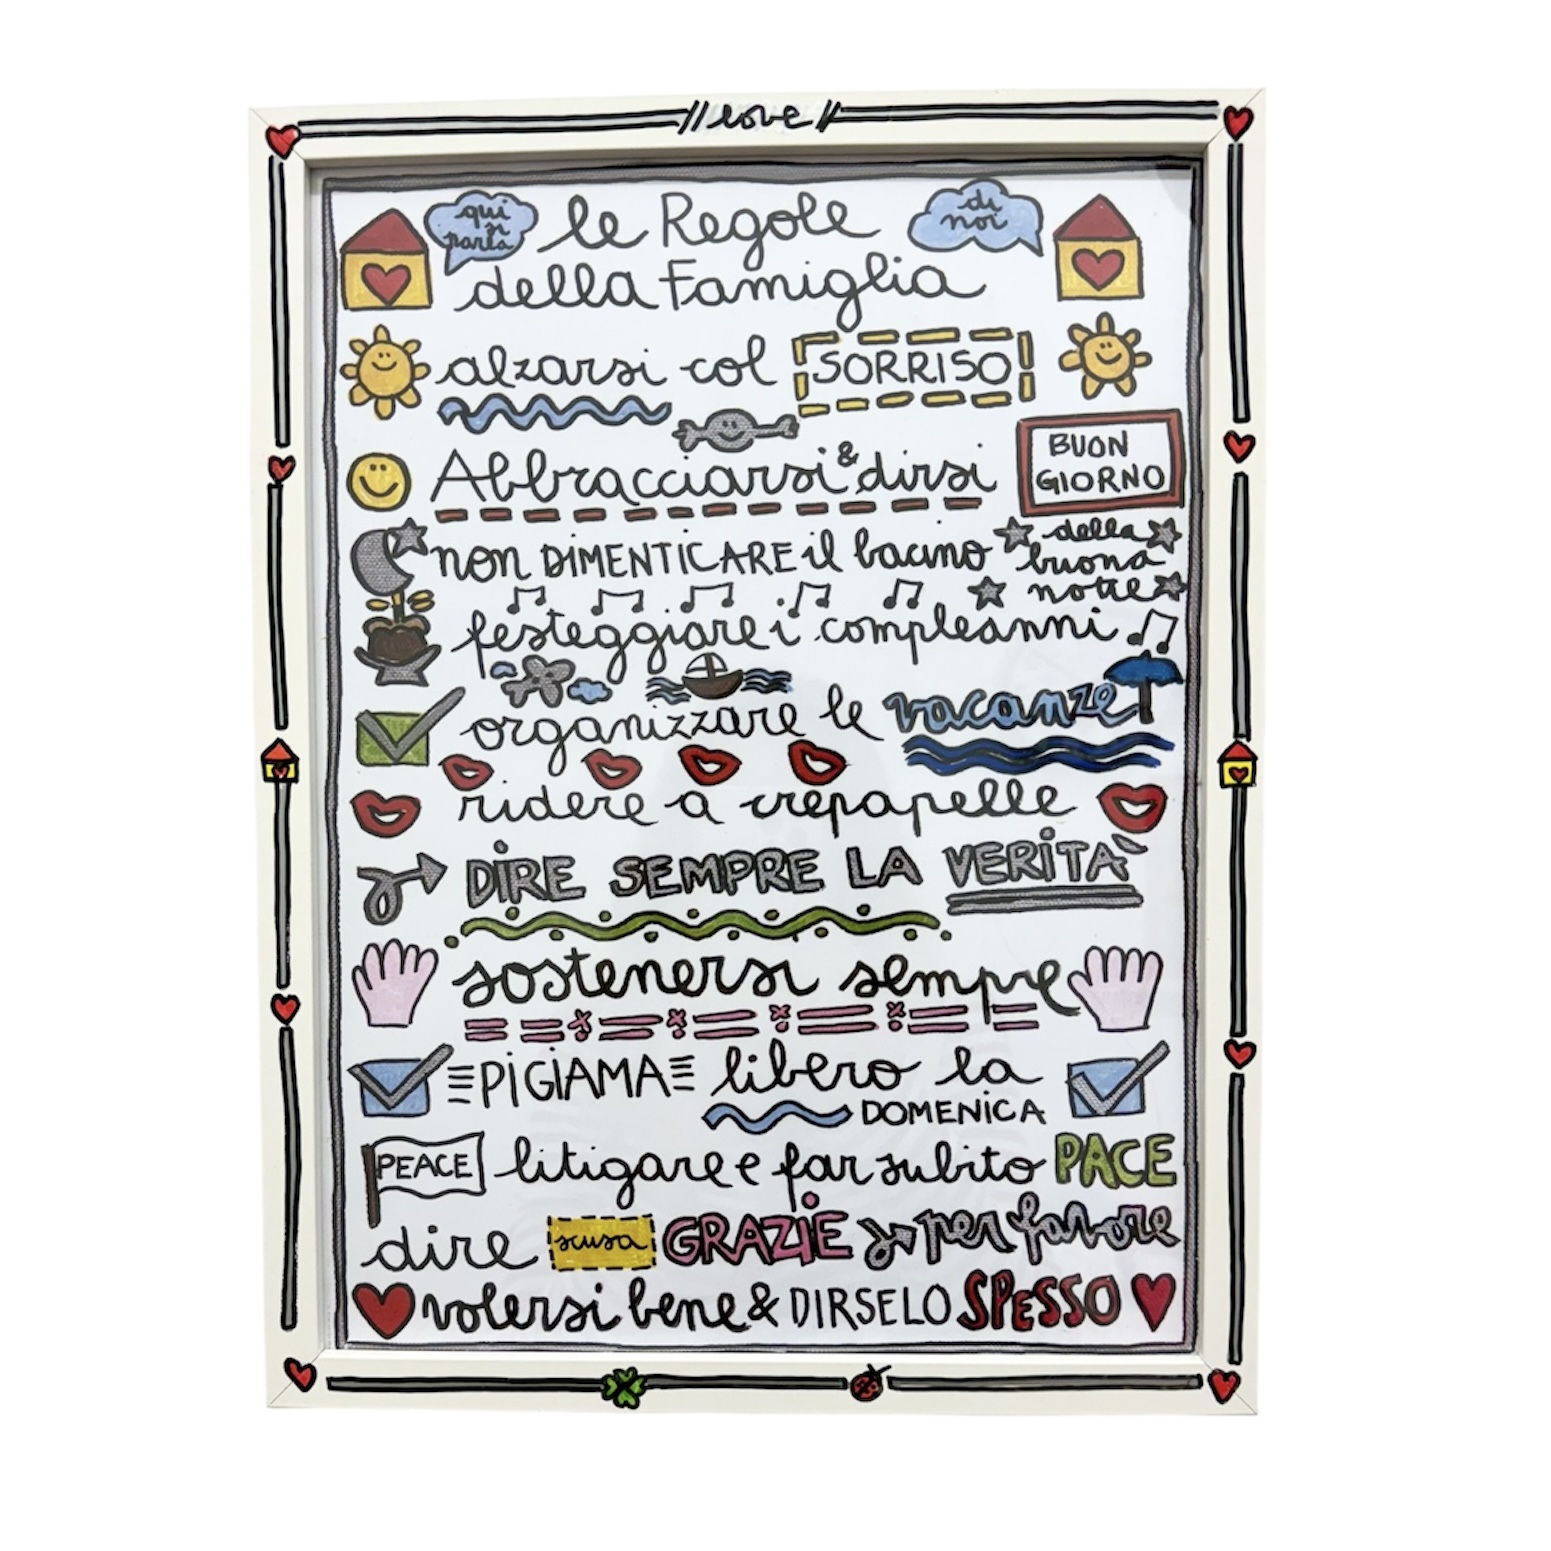 //love//
qui si parla
di noi
le Regole
della Famiglia
alzarsi col SORRISO
Abbracciarsi & dirsi
BUON GIORNO
non DIMENTICARE il bacino della buona notte
festeggiare i compleanni
organizzare le vacanze
ridere a crepapelle
DIRE SEMPRE LA VERITÀ
sostenersi sempre
PIGIAMA libero la
DOMENICA
PEACE litigare e far subito PACE
dire scusa GRAZIE per favore
volersi bene & DIRSELO SPESSO